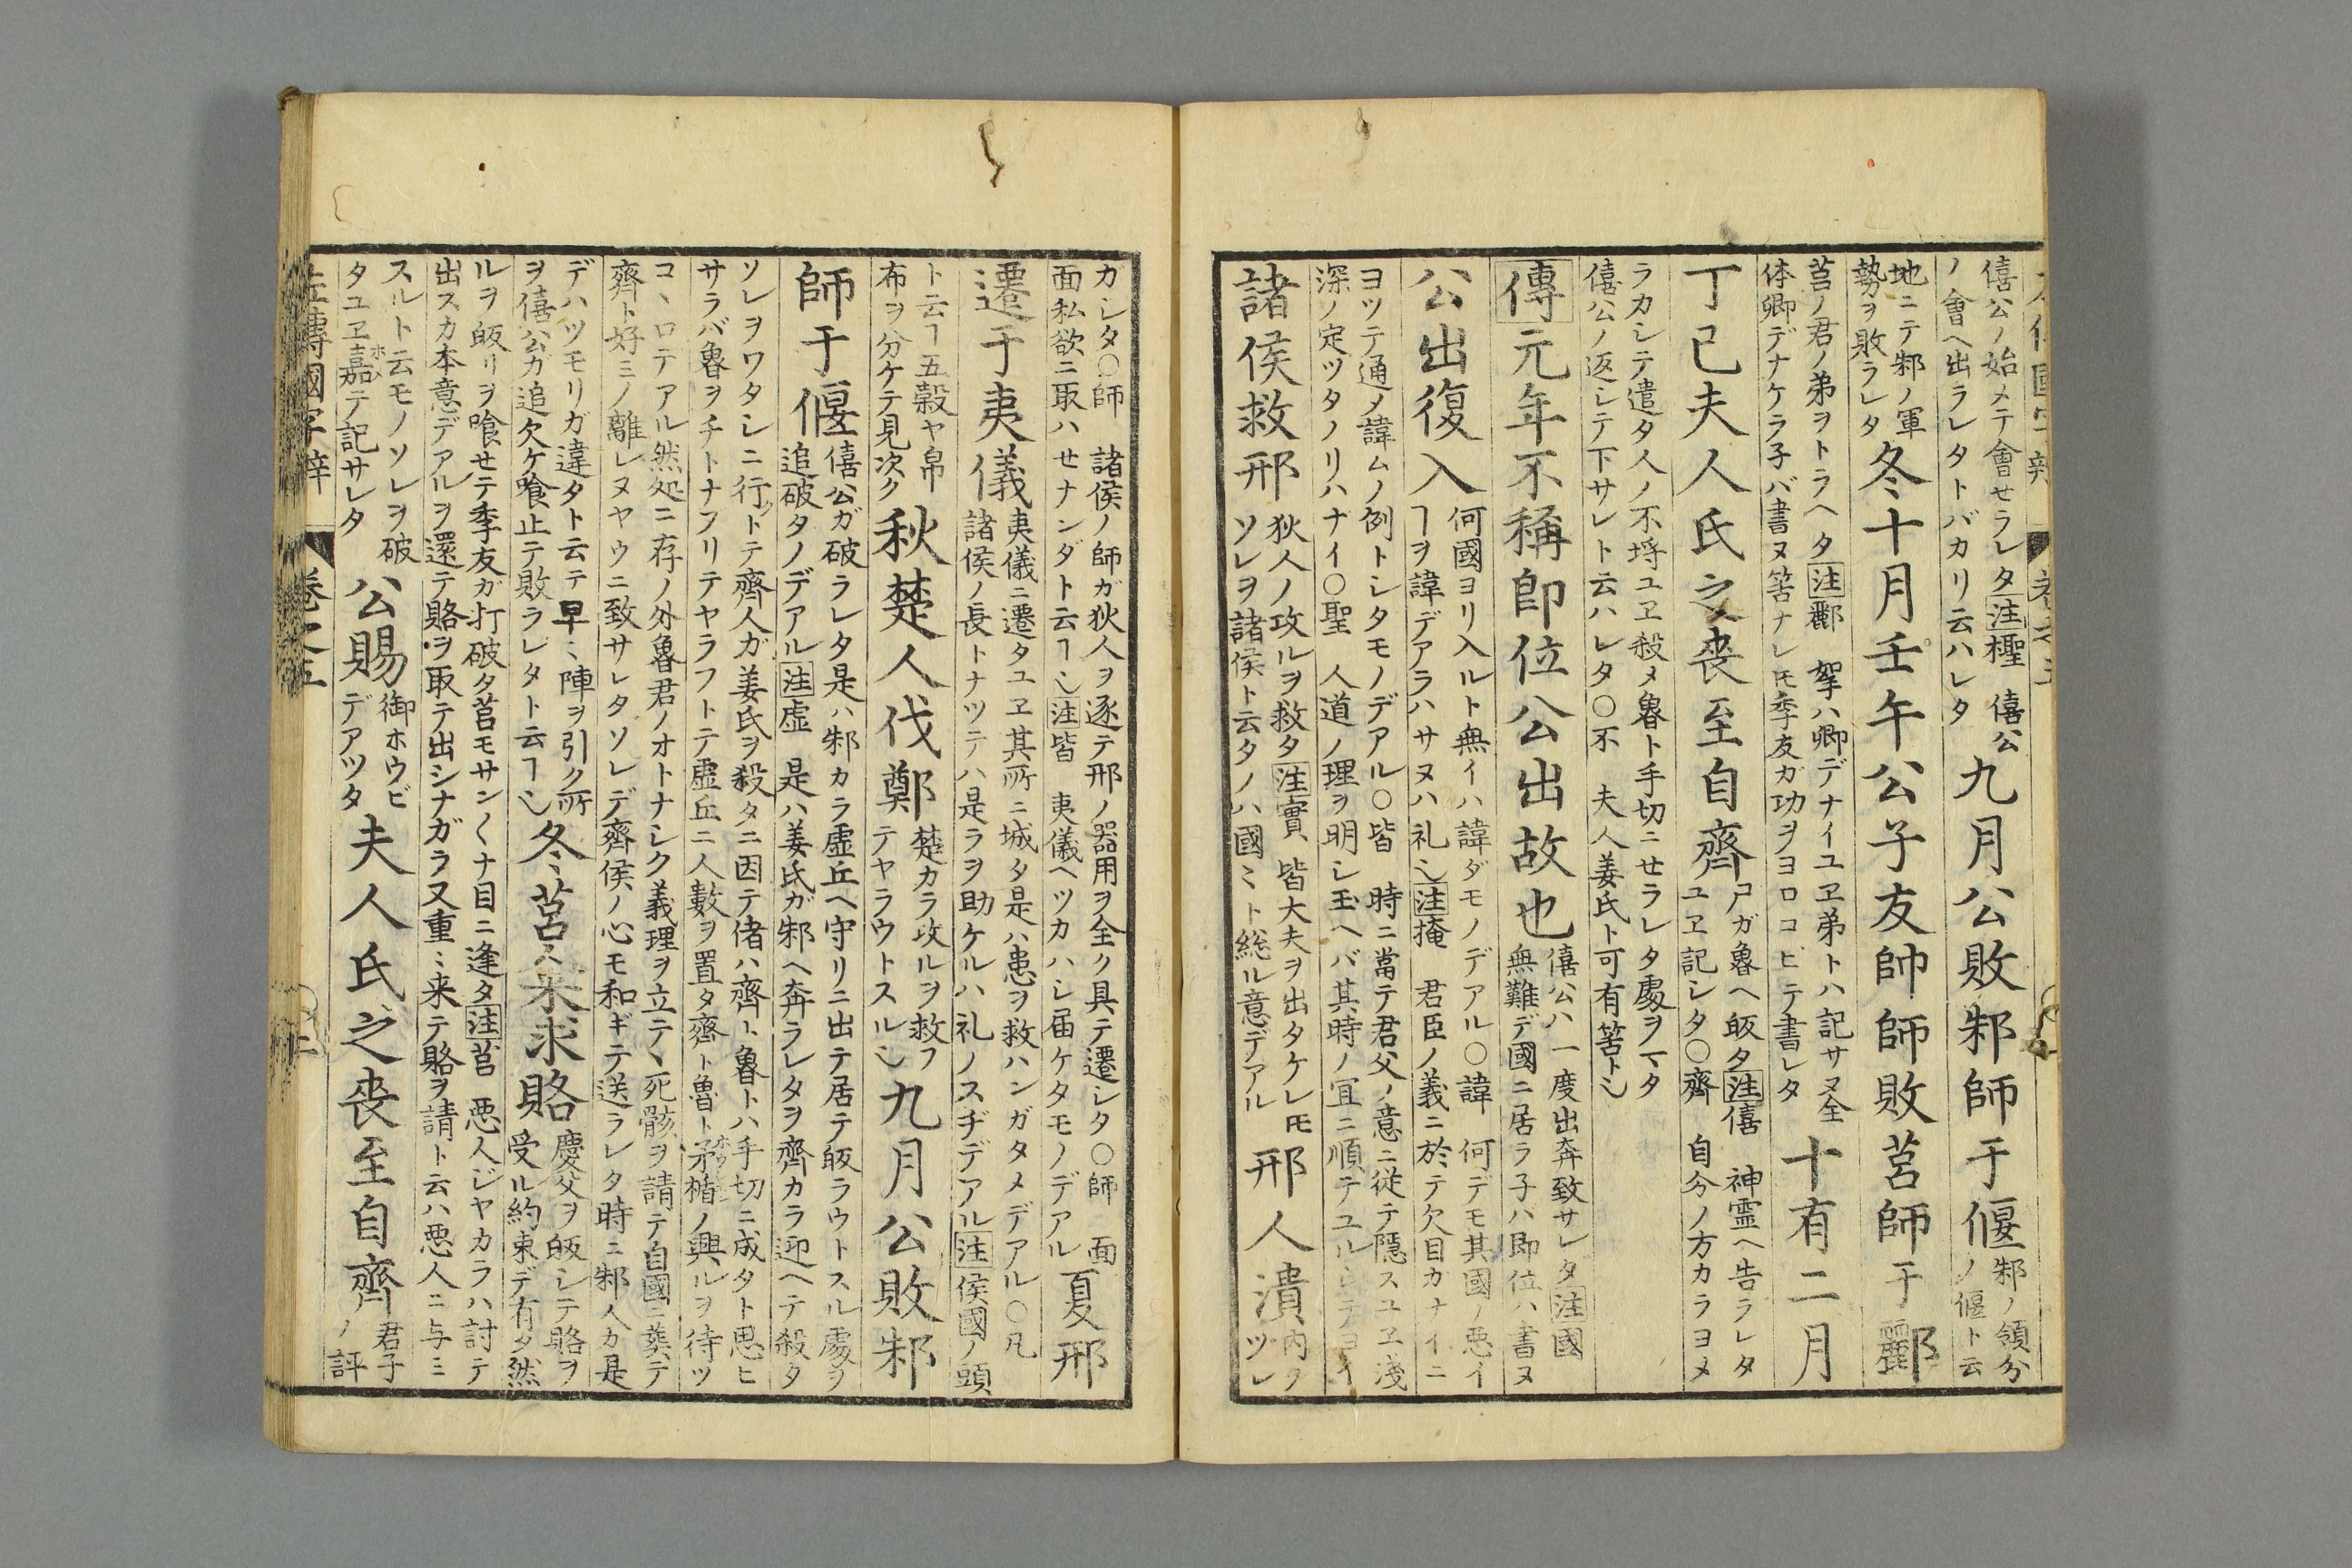 僖公ノ始メテ會セラレタ注檉 僖公
ノ會ヘ出ラレタトバカリ云ハレタ
九月公敗邾師于偃
邾ノ領分
ノ偃ト云
地ニテ邾ノ軍
勢ヲ敗ラレタ
冬十月壬午公子友帥師敗莒師于酈
莒ノ君ノ弟ヲトラヘタ注酈 挐ハ卿デナイユヱ弟トハ記サヌ全
体卿デナケラ子バ書ヌ筈ナレ𪜈季友ガ功ヲヨロコビテ書レタ
十有二月
丁已夫人氏之喪至自齊
尸ガ魯ヘ皈タ注僖 神霊ヘ告ラレタ
ユヱ記シタ○齊 自分ノ方カラヨメ
ラカシテ遣タ人ノ不埒ユヱ殺メ魯ト手切ニセラレタ處ヲマタ
僖公ノ返シテ下サレト云ハレタ○不 夫人姜氏ト可有筈トシ
傳元年不稱卽位公出故也
僖公ハ一度出奔致サレタ注國
無難デ國ニ居ラ子ハ即位ハ書ヌ
公出復入
何國ヨリ入ルト無イハ諱ダモノデアル○諱 何デモ其國ノ悪イ
ヿヲ諱デアラハサヌハ礼也注掩 君臣ノ義ニ於テ欠目カナイニ
ヨツテ通ノ諱ムノ例トシタモノデアル○皆 時ニ當テ君父ノ意ニ従テ隠スユヱ淺
深ノ定ツタノリハナイ○聖 人道ノ理ヲ明シ玉ヘバ其時ノ宜ニ順テユルシテヨイ
諸侯救邢
狄人ノ攻ルヲ救タ注實 皆大夫ヲ出タケレ𪜈
ソレヲ諸侯ト云タノハ國ミト総ル意デアル
邢人潰
内ノ
ツレ
ガシタ○師 諸侯ノ師ガ狄人ヲ逐テ邢ノ器用ヲ全ク具テ遷シタ○師 面
面私欲ニ取ハセナンダト云ヿ也注皆 夷儀ヘツカハシ届ケタモノデアル
夏邢
遷于夷儀
夷儀ニ遷タユヱ其所ニ城タ是ハ患ヲ救ハンガタメデアル○凡
諸侯ノ長トナツテハ是ラヲ助ケルハ礼ノスヂデアル注侯國ノ頭
ト云ヿ五穀ヤ帛
布ヲ分ケテ見次ク
秋楚人伐鄭
楚カラ攻ルヲ救フ
テヤラウトスル也
九月公敗邾
師于偃
僖公ガ破ラレタ是ハ邾カラ虚丘ヘ守リニ出テ居テ皈ラウトスル處ヲ
追破タノデアル注虚 是ハ姜氏ガ邾ヘ奔ラレタヲ齊カラ迎ヘテ殺タ
ソレヲワタシニ行トテ齊人ガ姜氏ヲ殺タニ因テ偖ハ齊ト魯トハ手切ニ成タト思ヒ
サラバ魯ヲチトナブリテヤラフトテ虚丘ニ人數ヲ置タ齊ト魯ト矛楯ノ興ルヲ待ツ
コヽロテアル然処ニ存ノ外魯君ノオトナシク義理ヲ立テヽ死骸ヲ請テ自國ニ葬テ
齊ト好ミノ離レヌヤウニ致サレタソレデ齊侯ノ心モ和ギテ送ラレタ時ニ邾人カ是
デハツモリガ違タト云テ早ミ陣ヲ引ク所
ヲ僖公ガ追欠ケ喰止テ敗ラレタト云ヿ也
冬莒人来求賂
慶父ヲ皈シテ賂ヲ
受ル約束デ有タ然
ルヲ皈リヲ喰セテ季友ガ打破タ莒モサン〱ナ目ニ逢タ注莒 悪人ジヤカラハ討テ
出スカ本意デアルヲ還テ賂ヲ取テ出シナガラ又重ミ来テ賂ヲ請ト云ハ悪人ニ与ミ
スルト云モノソレヲ破
タユヱ嘉テ記サレタ
公賜
御ホウビ
デアツタ
夫人氏之喪至自齊
君子
ノ評
左傳國字辨 卷之五